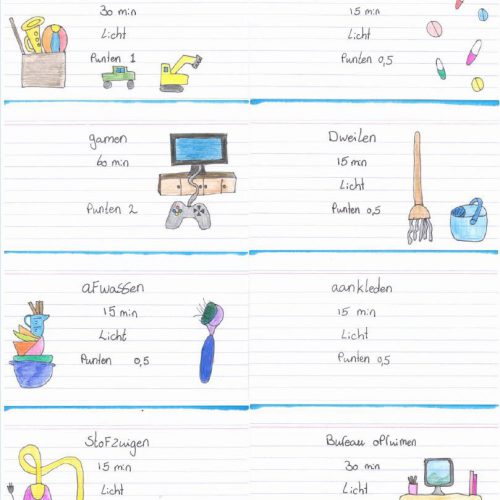 30 min
Licht
Punten 1
15 min
Licht
Punten 0,5
gamen
60 min
Punten 2
Dweilen
15 min
Licht
Punten 0,5
afwassen
15 min
Licht
Punten 0,5
aankleden
15 min
Licht
Punten 0,5
Stofzuigen
15 min
Licht
Bureau opruimen
30 min
Licht